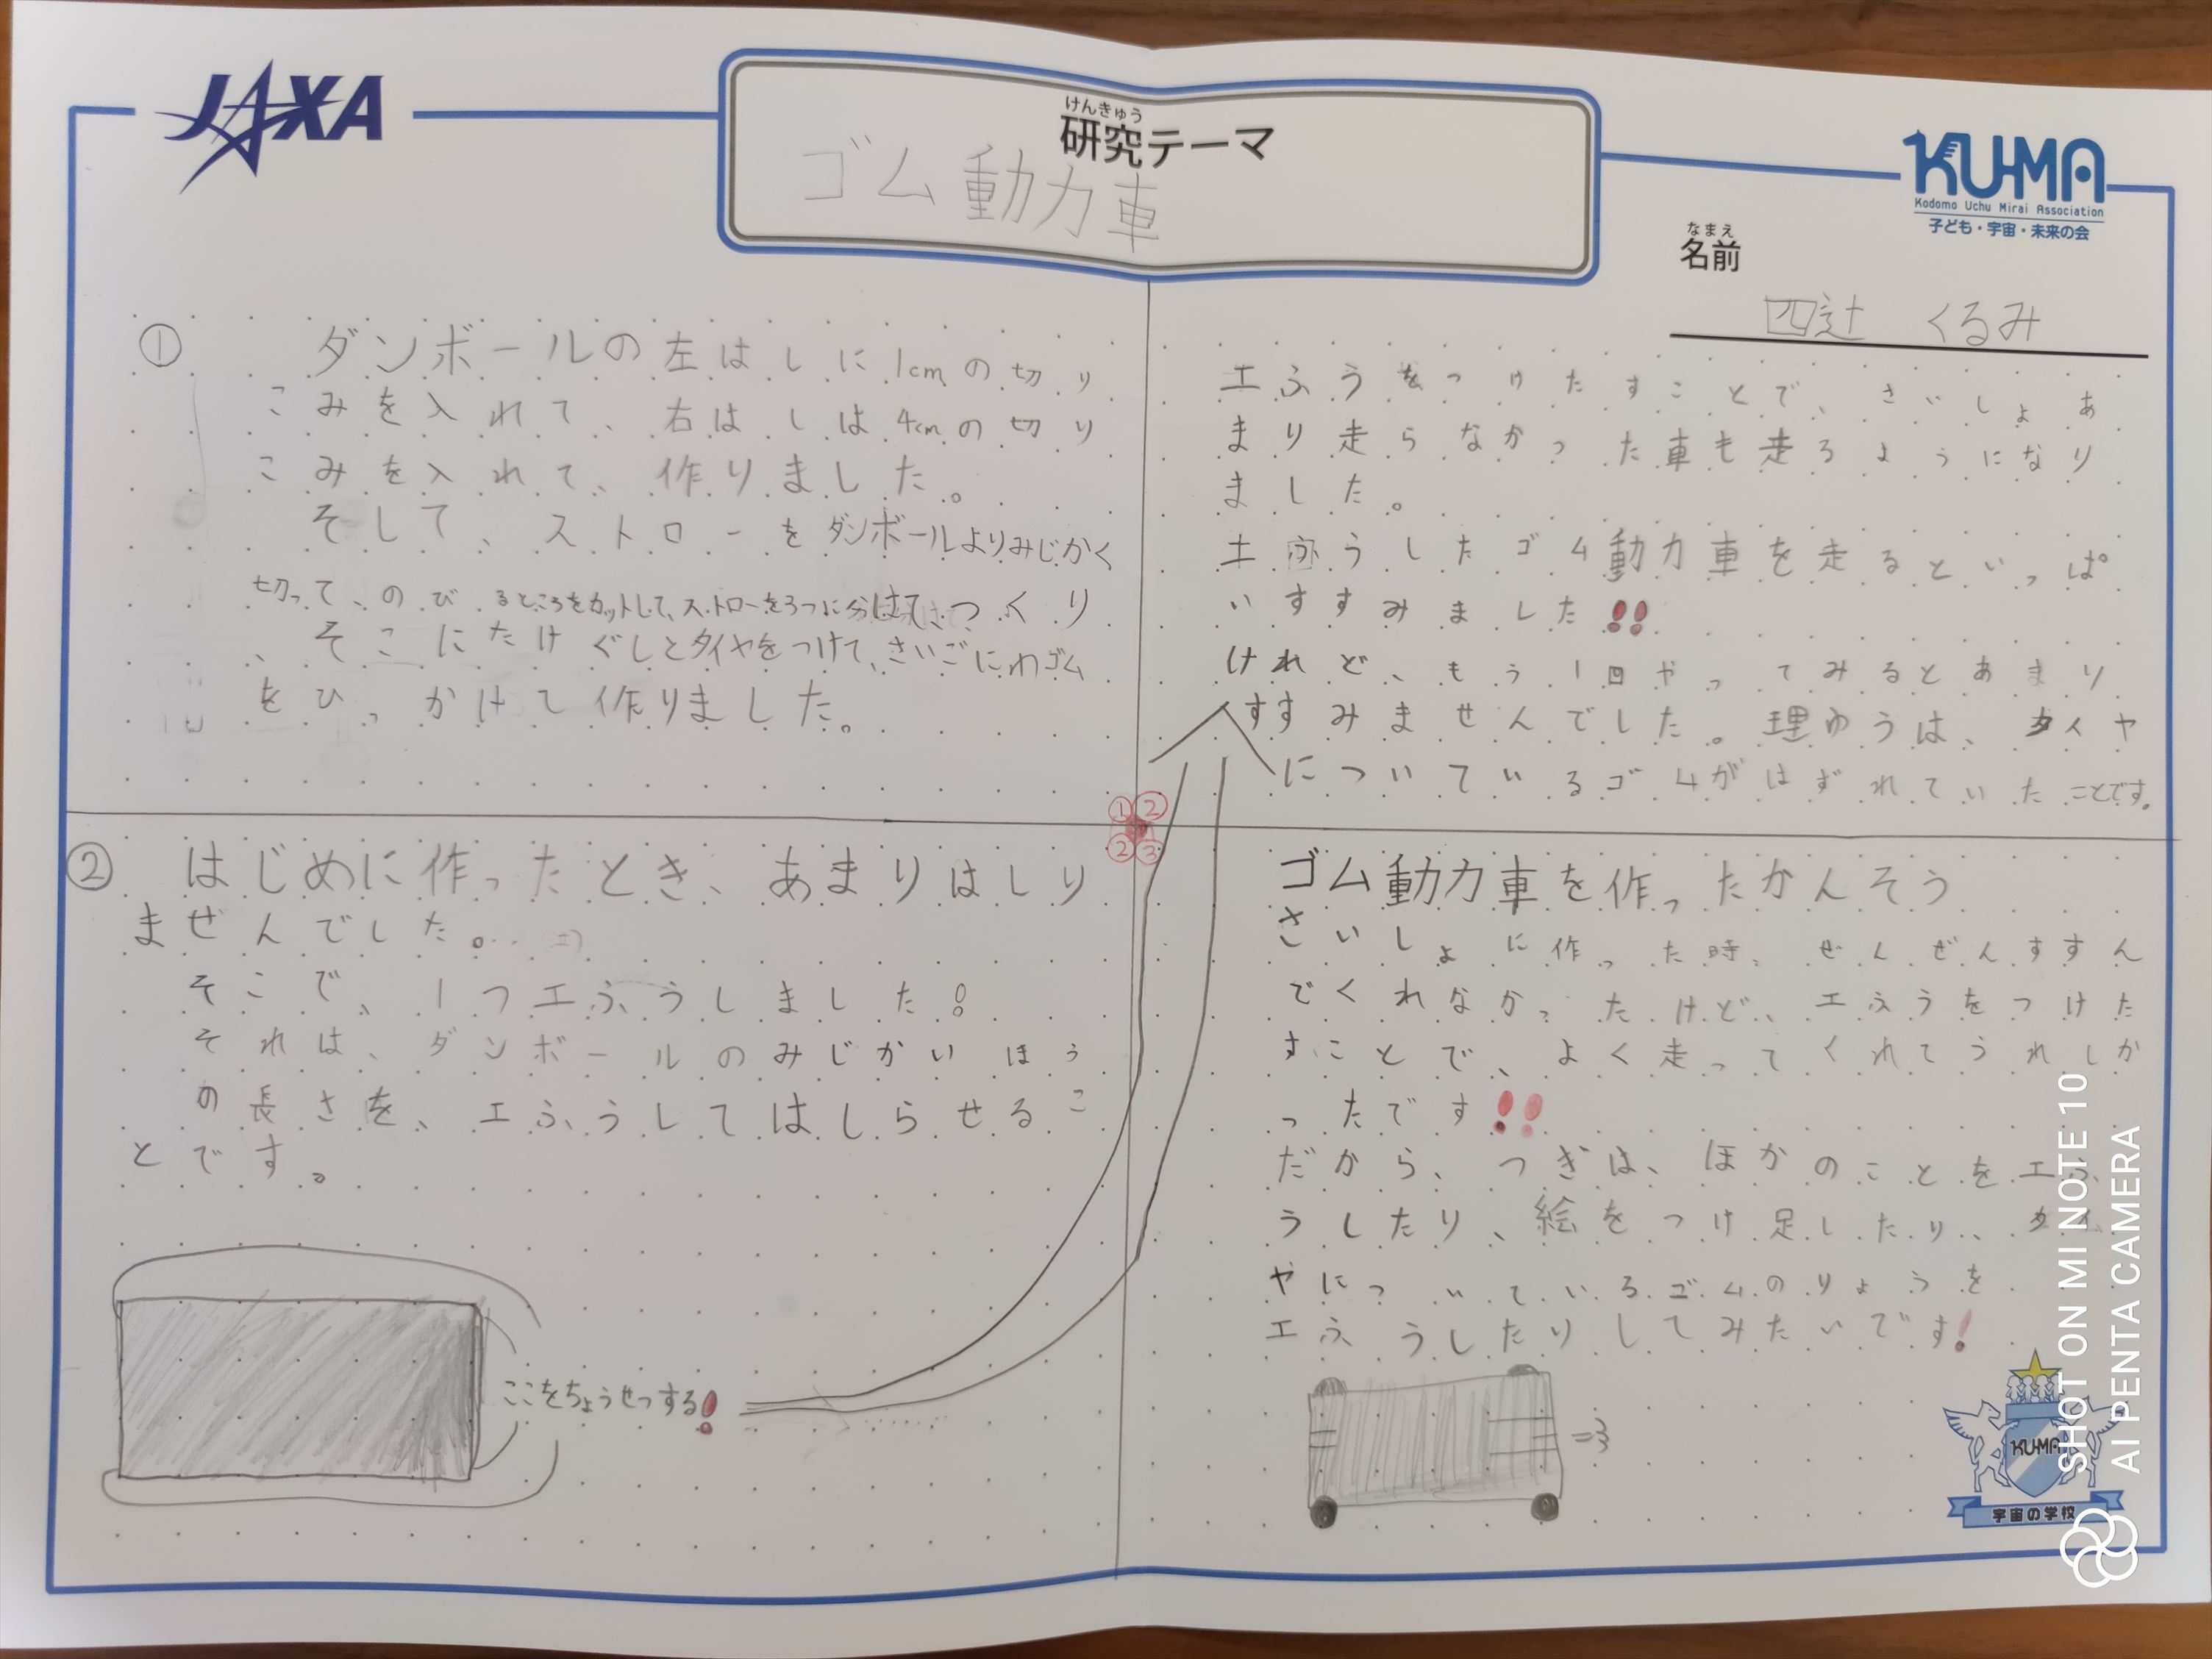 JAXA
けんきゅう
研究テーマ
ゴム動力車
KU-MA
Kodomo Uchu Mirai Association
子ども・宇宙・未来の会
なまえ
名前
四辻 くるみ
①
ダンボールの左はしに1cmの切り
こみを入れて、右はしは4cmの切り
こみを入れて、作りました。
そして、ストローをダンボールよりみじかく
切って、のびるところをカットして、ストローを3つに分けて、つくり
、そこにたけぐしとタイヤをつけて、さいごにわゴム
をひっかけて作りました。
工ふうをつけたすことで、さいしょあ
まり走らなかった車も走ろようになり
ました。
工ふうしたゴム動力車を走るといっぱ
いすすみました!!
けれど、もう1回やってみるとあまり
すすみませんでした。理ゆうは、タイヤ
についているゴムがはずれていたことです。
①②
②③
②
はじめに作ったとき、あまりはしり
ませんでした。
そこで、1つ工ふうしました!
それは、ダンボールのみじかいほう
の長さを、工ふうしてはしらせるこ
とです。
ここをちょうせつする!
ゴム動力車を作ったかんそう
さいしょに作った時、ぜんぜんすすん
でくれなかったけど、工ふうをつけた
すことで、よく走ってくれてうれしか
ったです!!
だから、つぎは、ほかのことを工ふ
うしたり、絵をつけ足したり、タイ
ヤについているゴムのりょうを
工ふうしたりしてみたいです!
KU-MA
宇宙の学校
SHOT ON MI NOTE 10
AI PENTA CAMERA